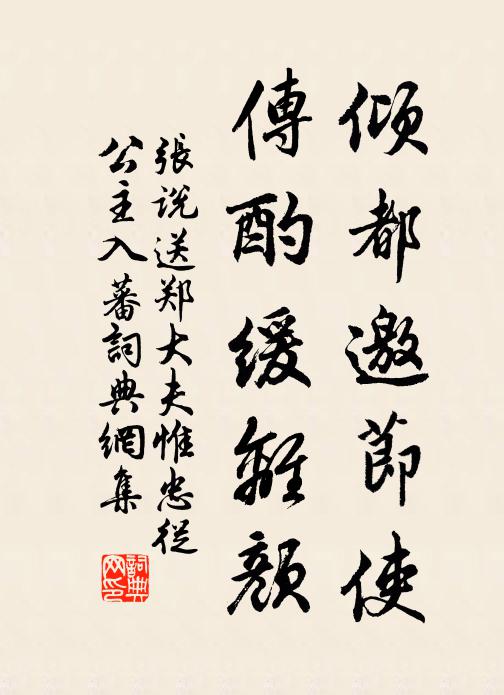 傾都邀節使
傳酌緩離顏
張說送郑大夫惟忠從
公主入蕃詞典網集
詞典
网印